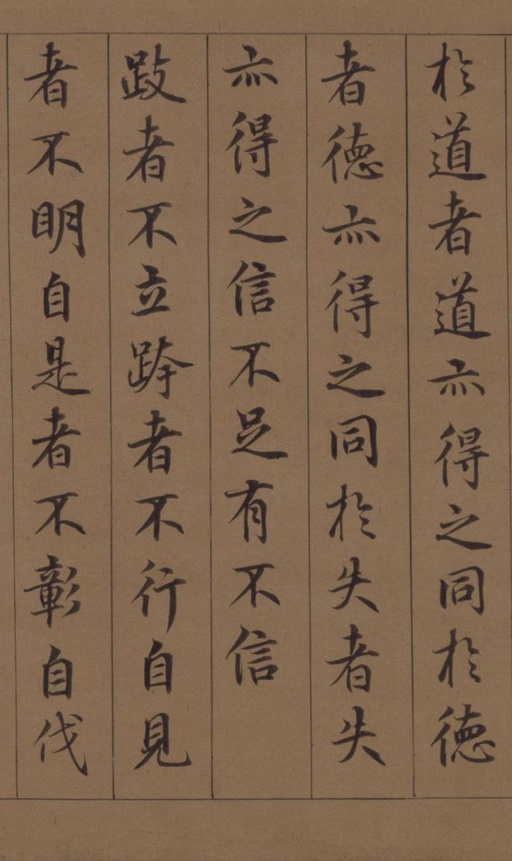 於道者道亦得之同於德
者德亦得之同於失者失
亦得之信不足有不信
跂者不立跨者不行自見
者不明自是者不彰自伐